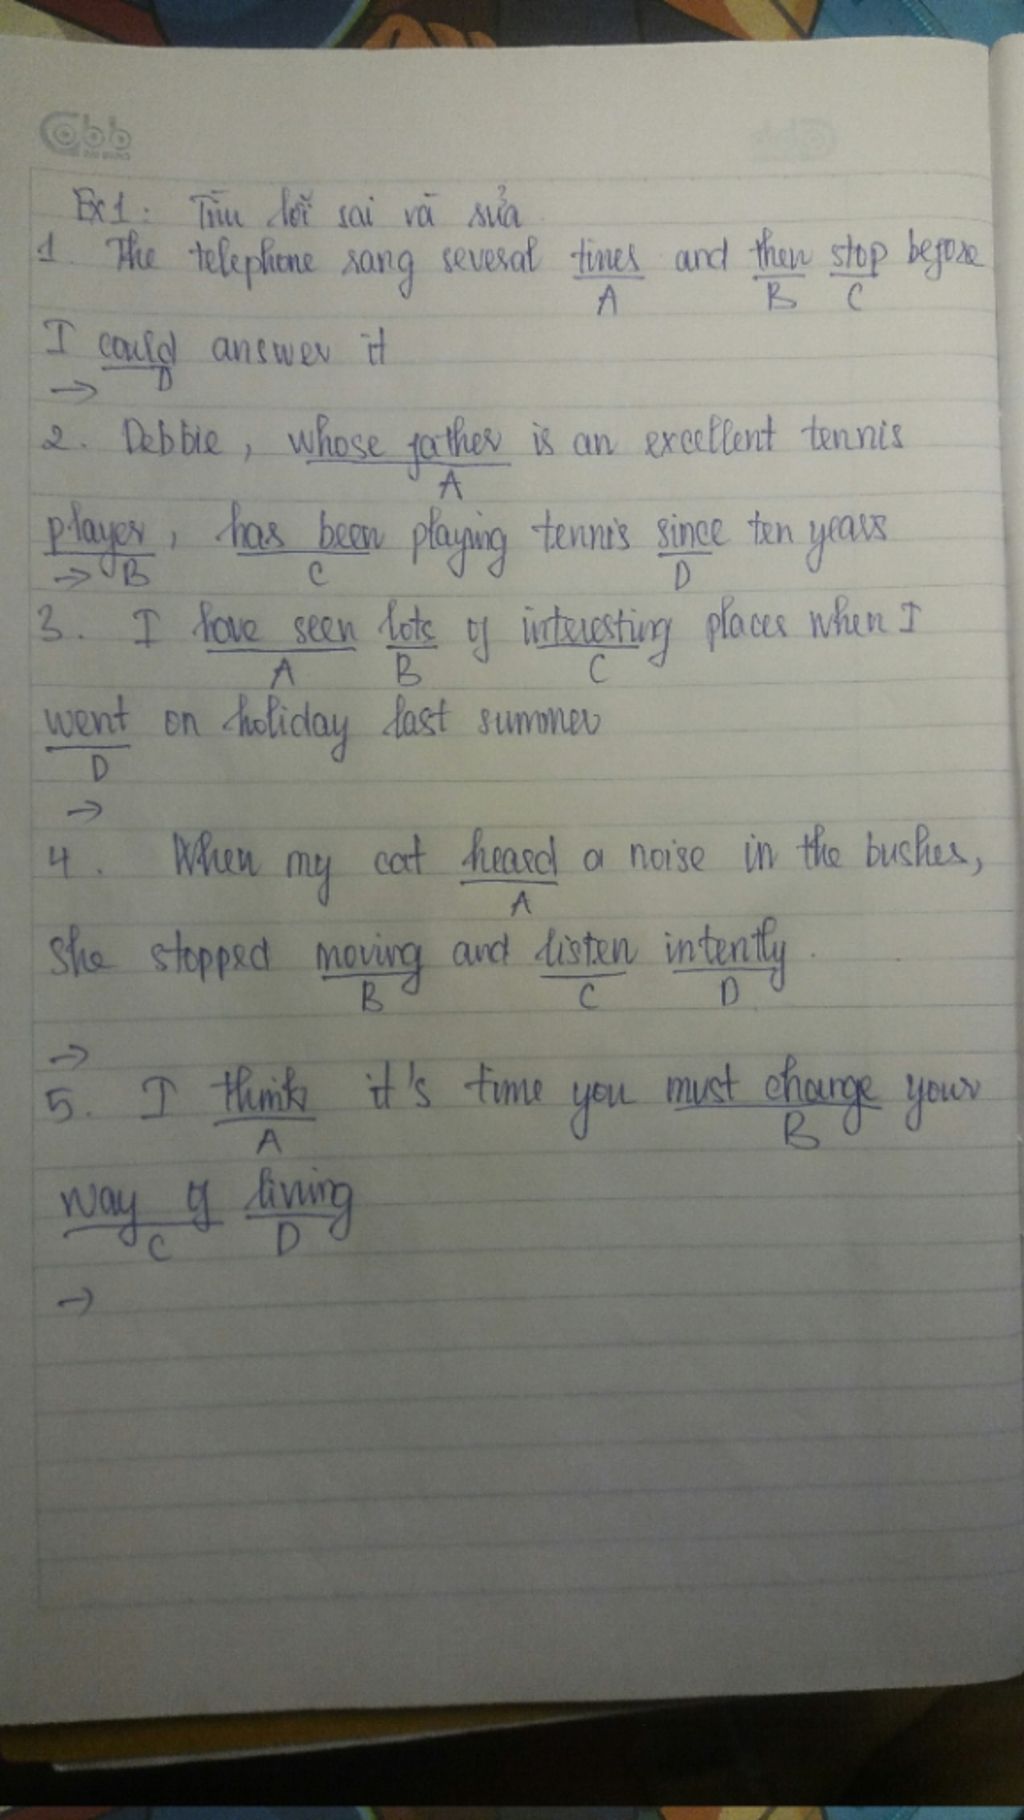 Ex1: Tìm lỗi sai và sửa
1. The telephone rang several times and then stop before
A B C
I could answer it
D
→
2. Debbie, whose father is an excellent tennis
A
player, has been playing tennis since ten years
→ B C D
3. I have seen lots of interesting places when I
A B C
went on holiday last summer
D
→
4. When my cat heard a noise in the bushes,
A
she stopped moving and listen intently.
B C D
→
5. I think it's time you must change your
A B
way of living
C D
→